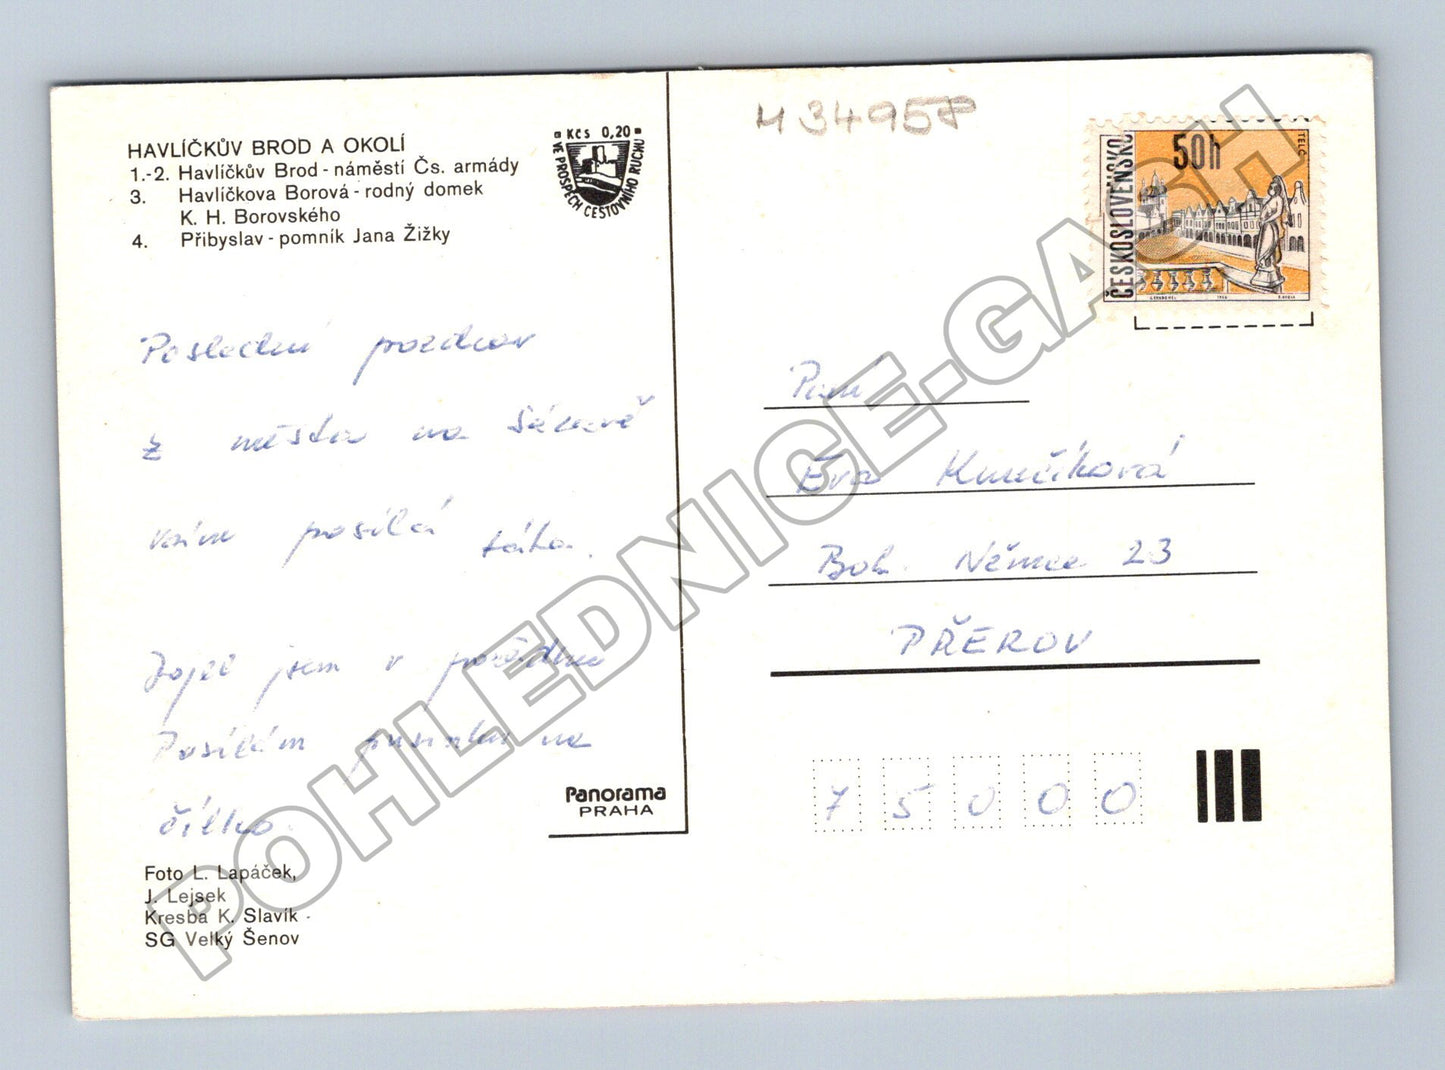 HAVLÍČKŮV BROD A OKOLÍ
1.-2. Havlíčkův Brod - náměstí Čs. armády
3. Havlíčkova Borová - rodný domek
K. H. Borovského
4. Přibyslav - pomník Jana Žižky
KČS 0,20
VE PROSPĚCH CESTOVNÍHO RUCHU
Poslední pozdrav
z města na Sázavě
vám posílá táta.
Dojel jsem v pořádku
Posílám pusinku na
čílko.
Foto L. Lapáček,
J. Lejsek
Kresba K. Slavík
SG Velký Šenov
Panorama
PRAHA
M 34957
ČESKOSLOVENSKO
50h
TELČ
1966
Paní
Eva
Boh. Němce 23
PŘEROV
75000
POHLEDNICE-GACH